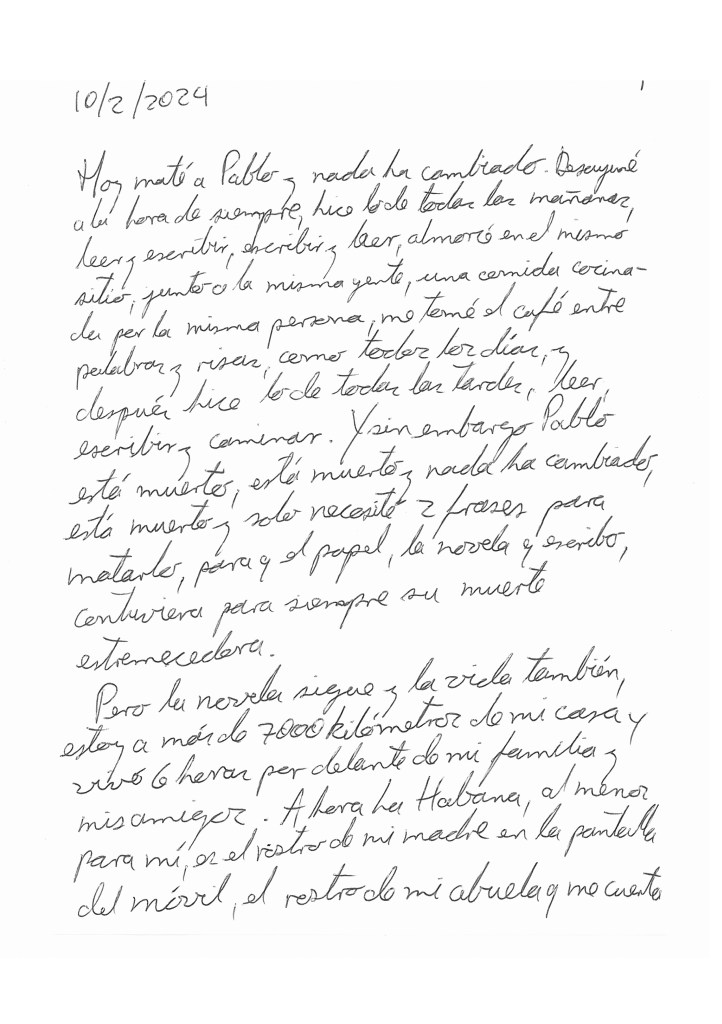 10/2/2024
1
Hoy maté a Pablo y nada ha cambiado. Desayuné
a la hora de siempre, hice lo de todas las mañanas,
leer y escribir, escribir y leer, almorcé en el mismo
sitio, junto a la misma gente, una comida cocina-
da por la misma persona, me tomé el café entre
palabras y risas, como todos los días, y
después hice lo de todas las tardes, leer,
escribir y caminar. Y sin embargo Pablo
está muerto, está muerto y nada ha cambiado,
está muerto y solo necesité 2 frases para
matarlo, para q el papel, la novela q escribo,
contuviera para siempre su muerte
estremecedora.
Pero la novela sigue y la vida también,
estoy a más de 7000 kilómetros de mi casa y
vivo 6 horas por delante de mi familia y
mis amigos. Ahora La Habana, al menos
para mí, es el rostro de mi madre en la pantalla
del móvil, el rostro de mi abuela q me cuenta